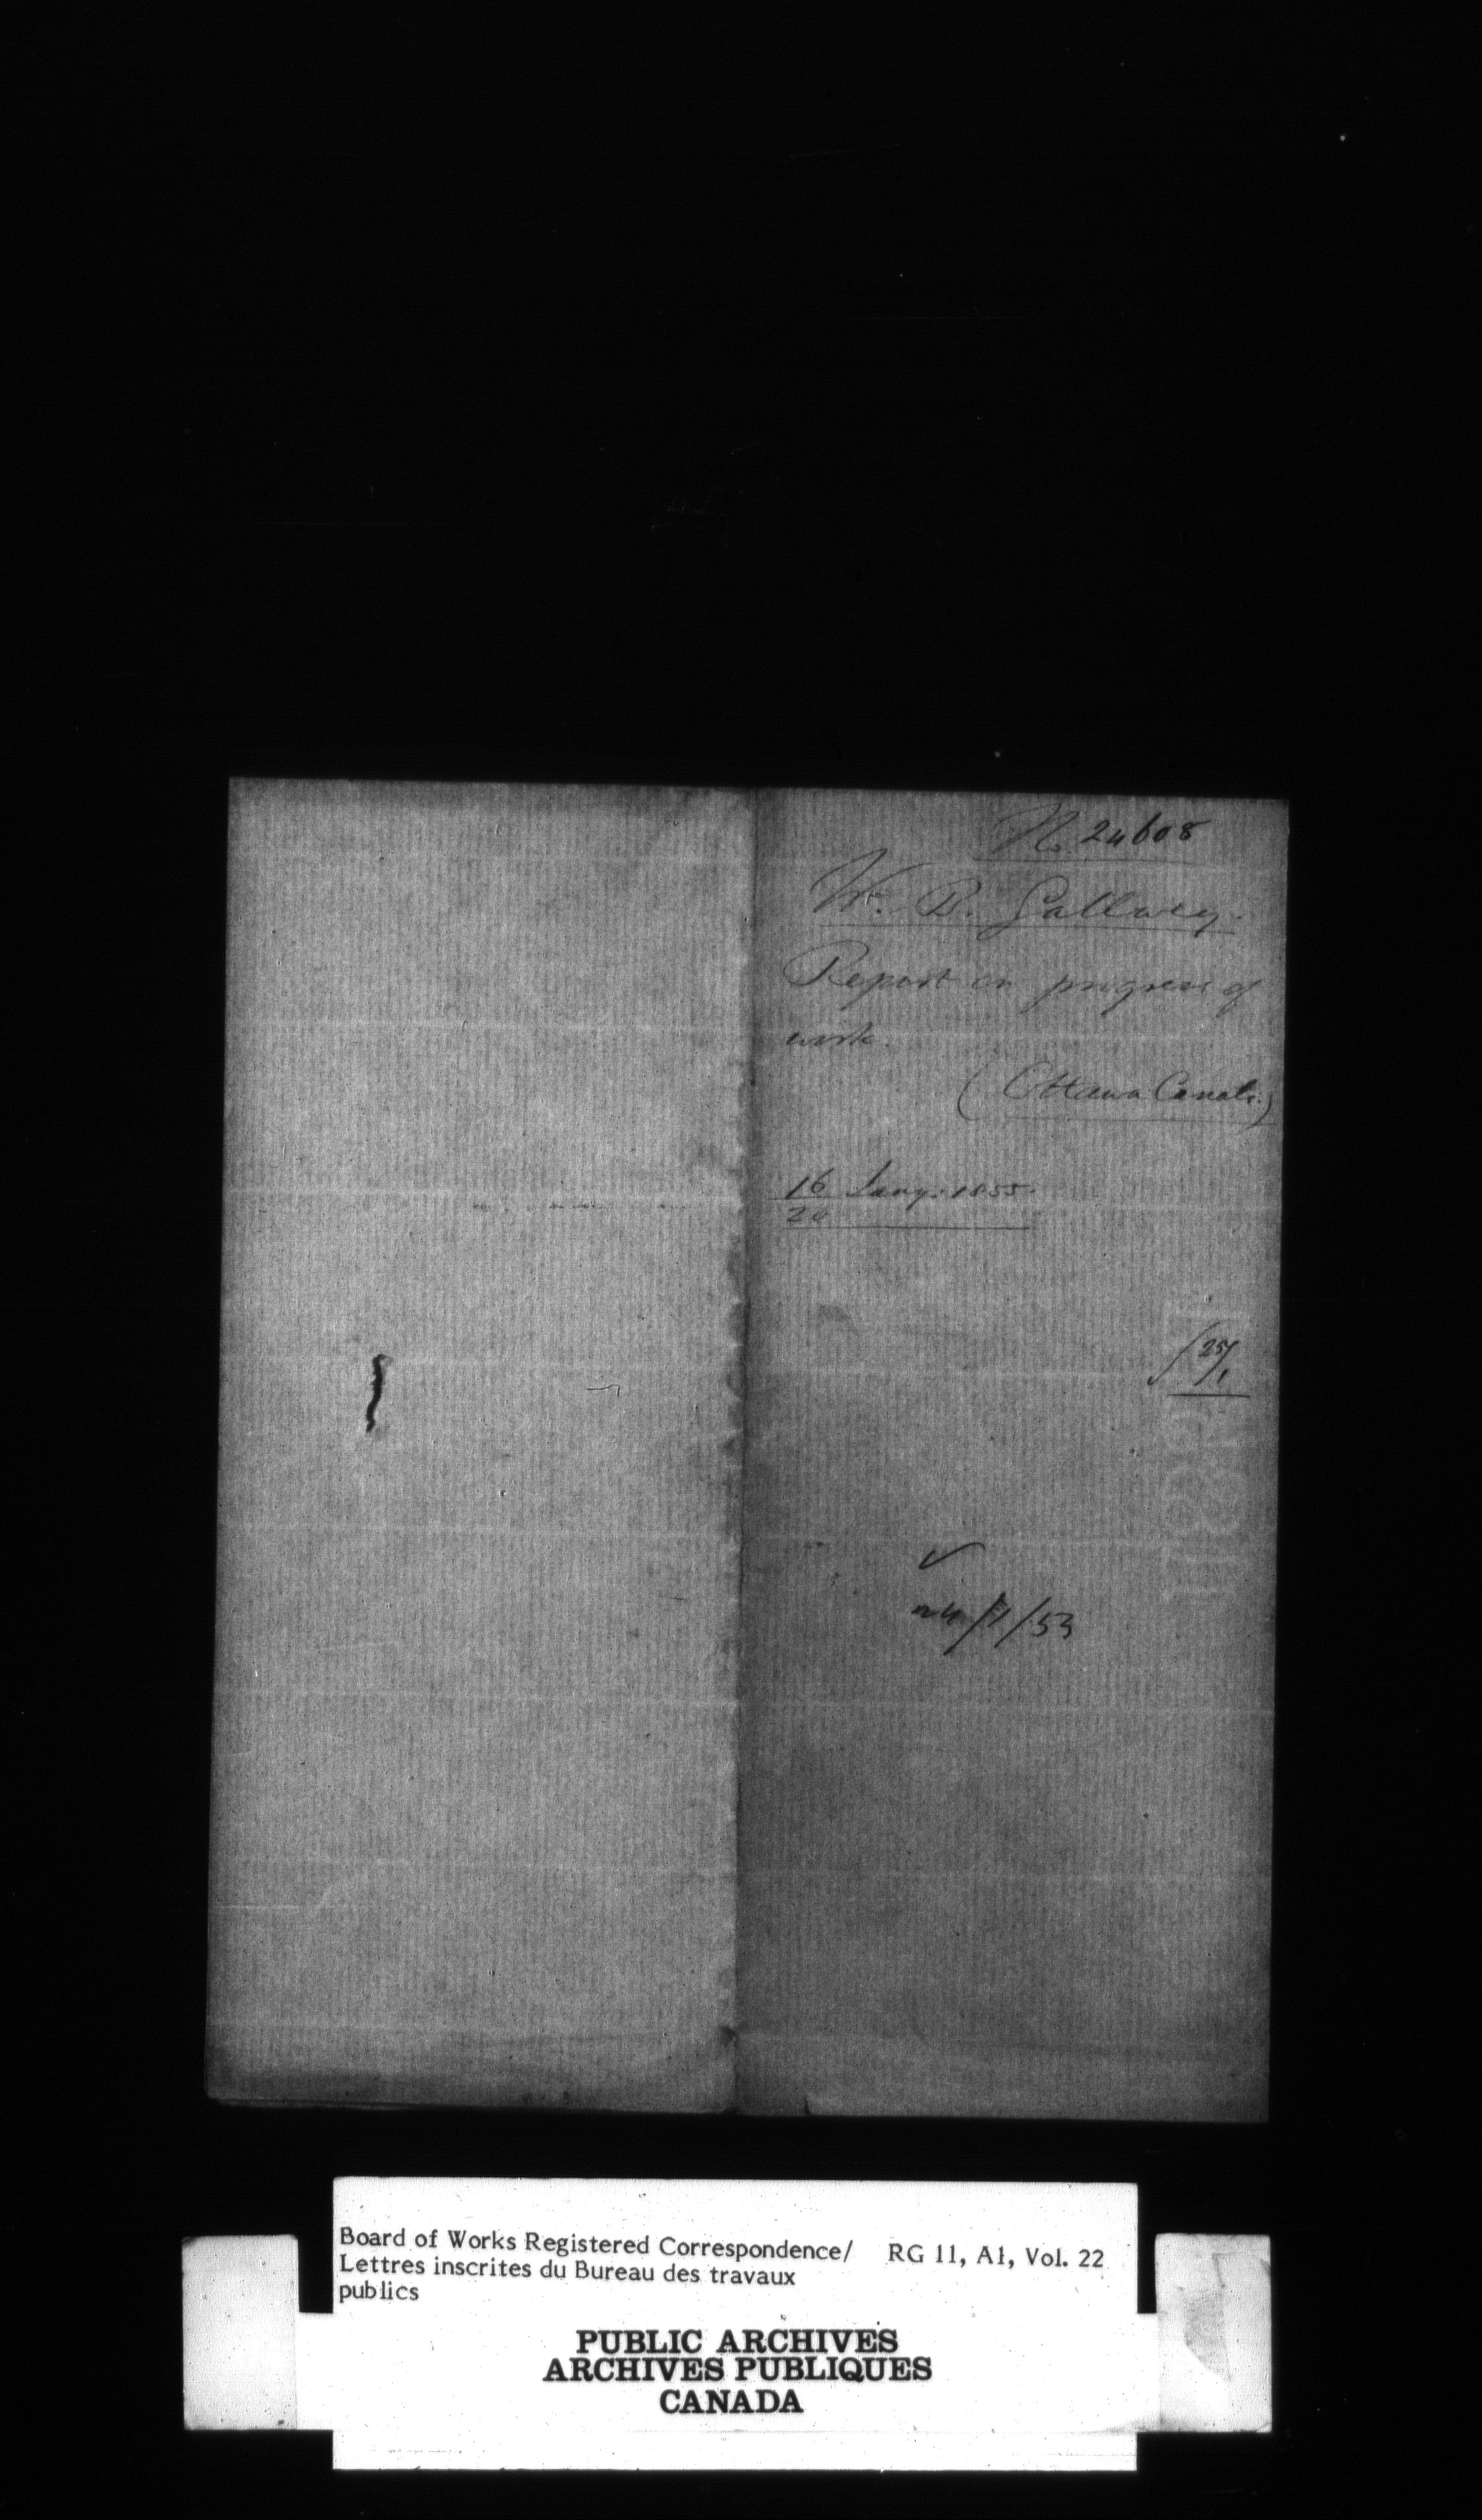 No. 24608
W. B. Gallwey.
Report on progress of
work.
(Ottawa Canals.)
16 Jany. 1855.
20
25/1
24/1/53
Board of Works Registered Correspondence/ RG 11, A1, Vol. 22
Lettres inscrites du Bureau des travaux
publics
PUBLIC ARCHIVES
ARCHIVES PUBLIQUES
CANADA